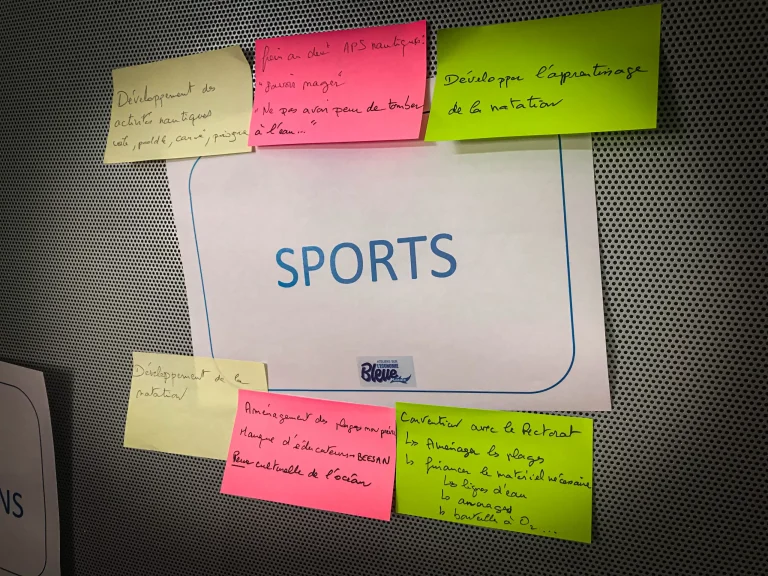 Développement des
activités nautiques
voile, paddle, canoë,
APS nautiques:
"Savoir nager"
"Ne pas avoir peur de tomber
à l'eau..."
Développer l'apprentissage
de la natation
SPORTS
L'ECONOMIE
Bleue
Développement de la
natation
Aménagement des plages
Manque d'éducateurs BEESAN
Peur culturelle de l'océan
Convention avec le Rectorat
↳ Aménager les plages
↳ financer le matériel nécessaire
↳ lignes d'eau
↳
↳ bouteille à O2...
NS